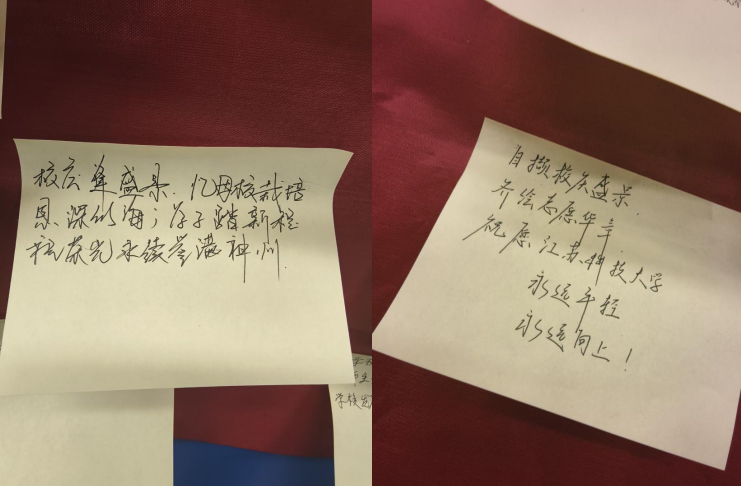 校庆华盛景.忆母校栽培
恩深似海;学子踏新程
祝荣光永续誉满神州.
自撷校庆盛景.
齐绘志愿华章.
祝愿江苏科技大学
永远年轻
永远向上!